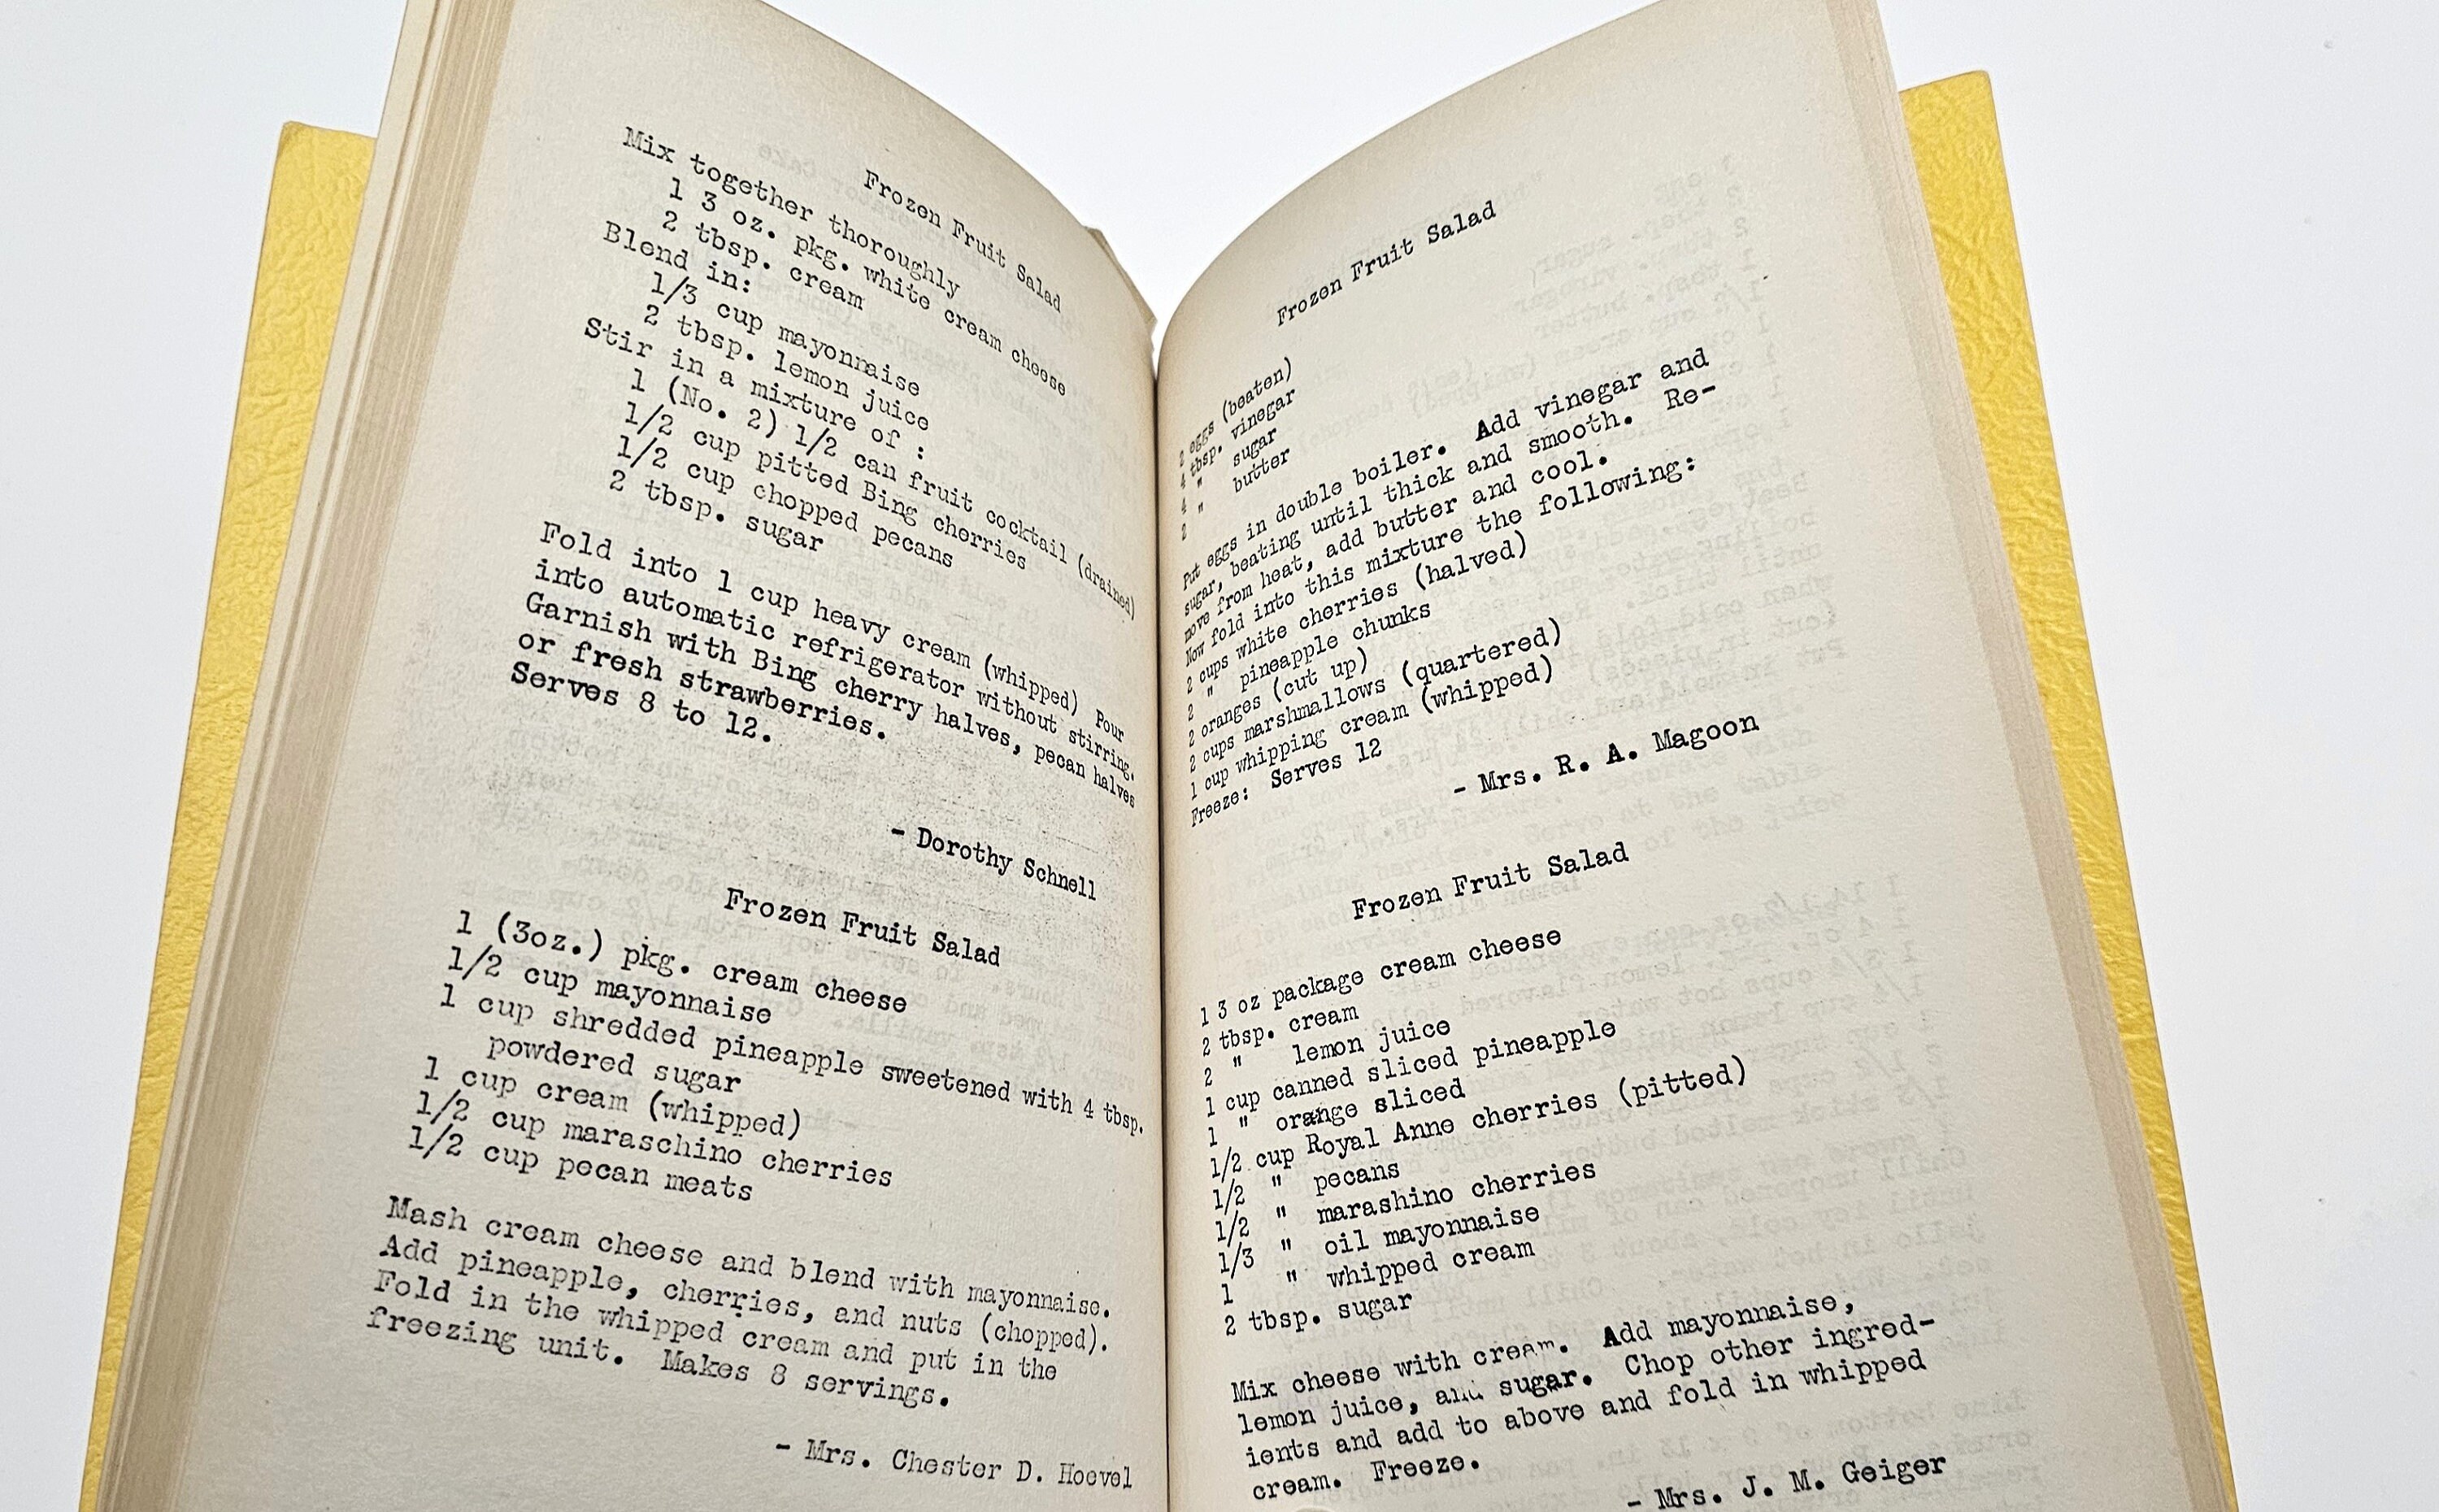 Frozen Fruit Salad
Mix together thoroughly
1 3 oz. pkg. white cream cheese
2 tbsp. cream
Blend in:
1/3 cup mayonnaise
2 tbsp. lemon juice
Stir in a mixture of :
1 (No. 2) 1/2 can fruit cocktail (drained)
1/2 cup pitted Bing cherries
1/2 cup chopped pecans
2 tbsp. sugar
Fold into 1 cup heavy cream (whipped) Pour
into automatic refrigerator without stirring.
Garnish with Bing cherry halves, pecan halves
or fresh strawberries.
Serves 8 to 12.
- Dorothy Schnell
Frozen Fruit Salad
1 (3oz.) pkg. cream cheese
1/2 cup mayonnaise
1 cup shredded pineapple sweetened with 4 tbsp.
powdered sugar
1 cup cream (whipped)
1/2 cup maraschino cherries
1/2 cup pecan meats
Mash cream cheese and blend with mayonnaise.
Add pineapple, cherries, and nuts (chopped).
Fold in the whipped cream and put in the
freezing unit. Makes 8 servings.
- Mrs. Chester D. Hoevel
Frozen Fruit Salad
2 eggs (beaten)
4 tbsp. vinegar
4 " sugar
2 " butter
Put eggs in double boiler. Add vinegar and
sugar, beating until thick and smooth. Re-
move from heat, add butter and cool.
Now fold into this mixture the following:
2 cups white cherries (halved)
2 " pineapple chunks
2 oranges (cut up)
2 cups marshmallows (quartered)
1 cup whipping cream (whipped)
Freeze: Serves 12
- Mrs. R. A. Magoon
Frozen Fruit Salad
1 3 oz package cream cheese
2 tbsp. cream
2 " lemon juice
1 cup canned sliced pineapple
1 " orange sliced
1/2 cup Royal Anne cherries (pitted)
1/2 " pecans
1/2 " marashino cherries
1/3 " oil mayonnaise
1 " whipped cream
2 tbsp. sugar
Mix cheese with cream. Add mayonnaise,
lemon juice, and sugar. Chop other ingred-
ients and add to above and fold in whipped
cream. Freeze.
- Mrs. J. M. Geiger